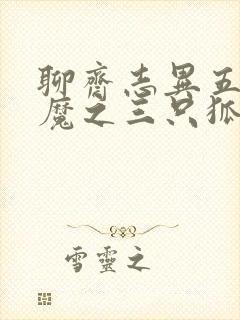 聊齋志異五
魔之三只狐
雪靈之